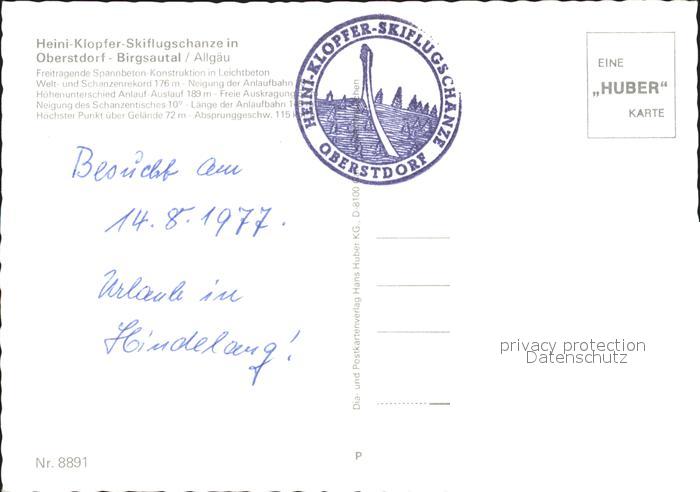 Heini-Klopfer-Skiflugschanze in
Oberstdorf - Birgsautal / Allgäu
Freitragende Spannbeton-Konstruktion in Leichtbeton
Welt- und Schanzenrekord 176 m - Neigung der Anlaufbahn
Höhenunterschied Anlauf-Auslauf 189 m - Freie Auskragung
Neigung des Schanzentisches 10° - Länge der Anlaufbahn
Höchster Punkt über Gelände 72 m - Absprunggeschw. 115
HEINI-KLOPFER-SKIFLUGSCHANZE
OBERSTDORF
EINE
„HUBER"
KARTE
Besucht am
14.8.1977.
Urlaub in
Hindelang!
Dia- und Postkartenverlag Hans Huber KG., D-8100
privacy protection
Datenschutz
Nr. 8891
P